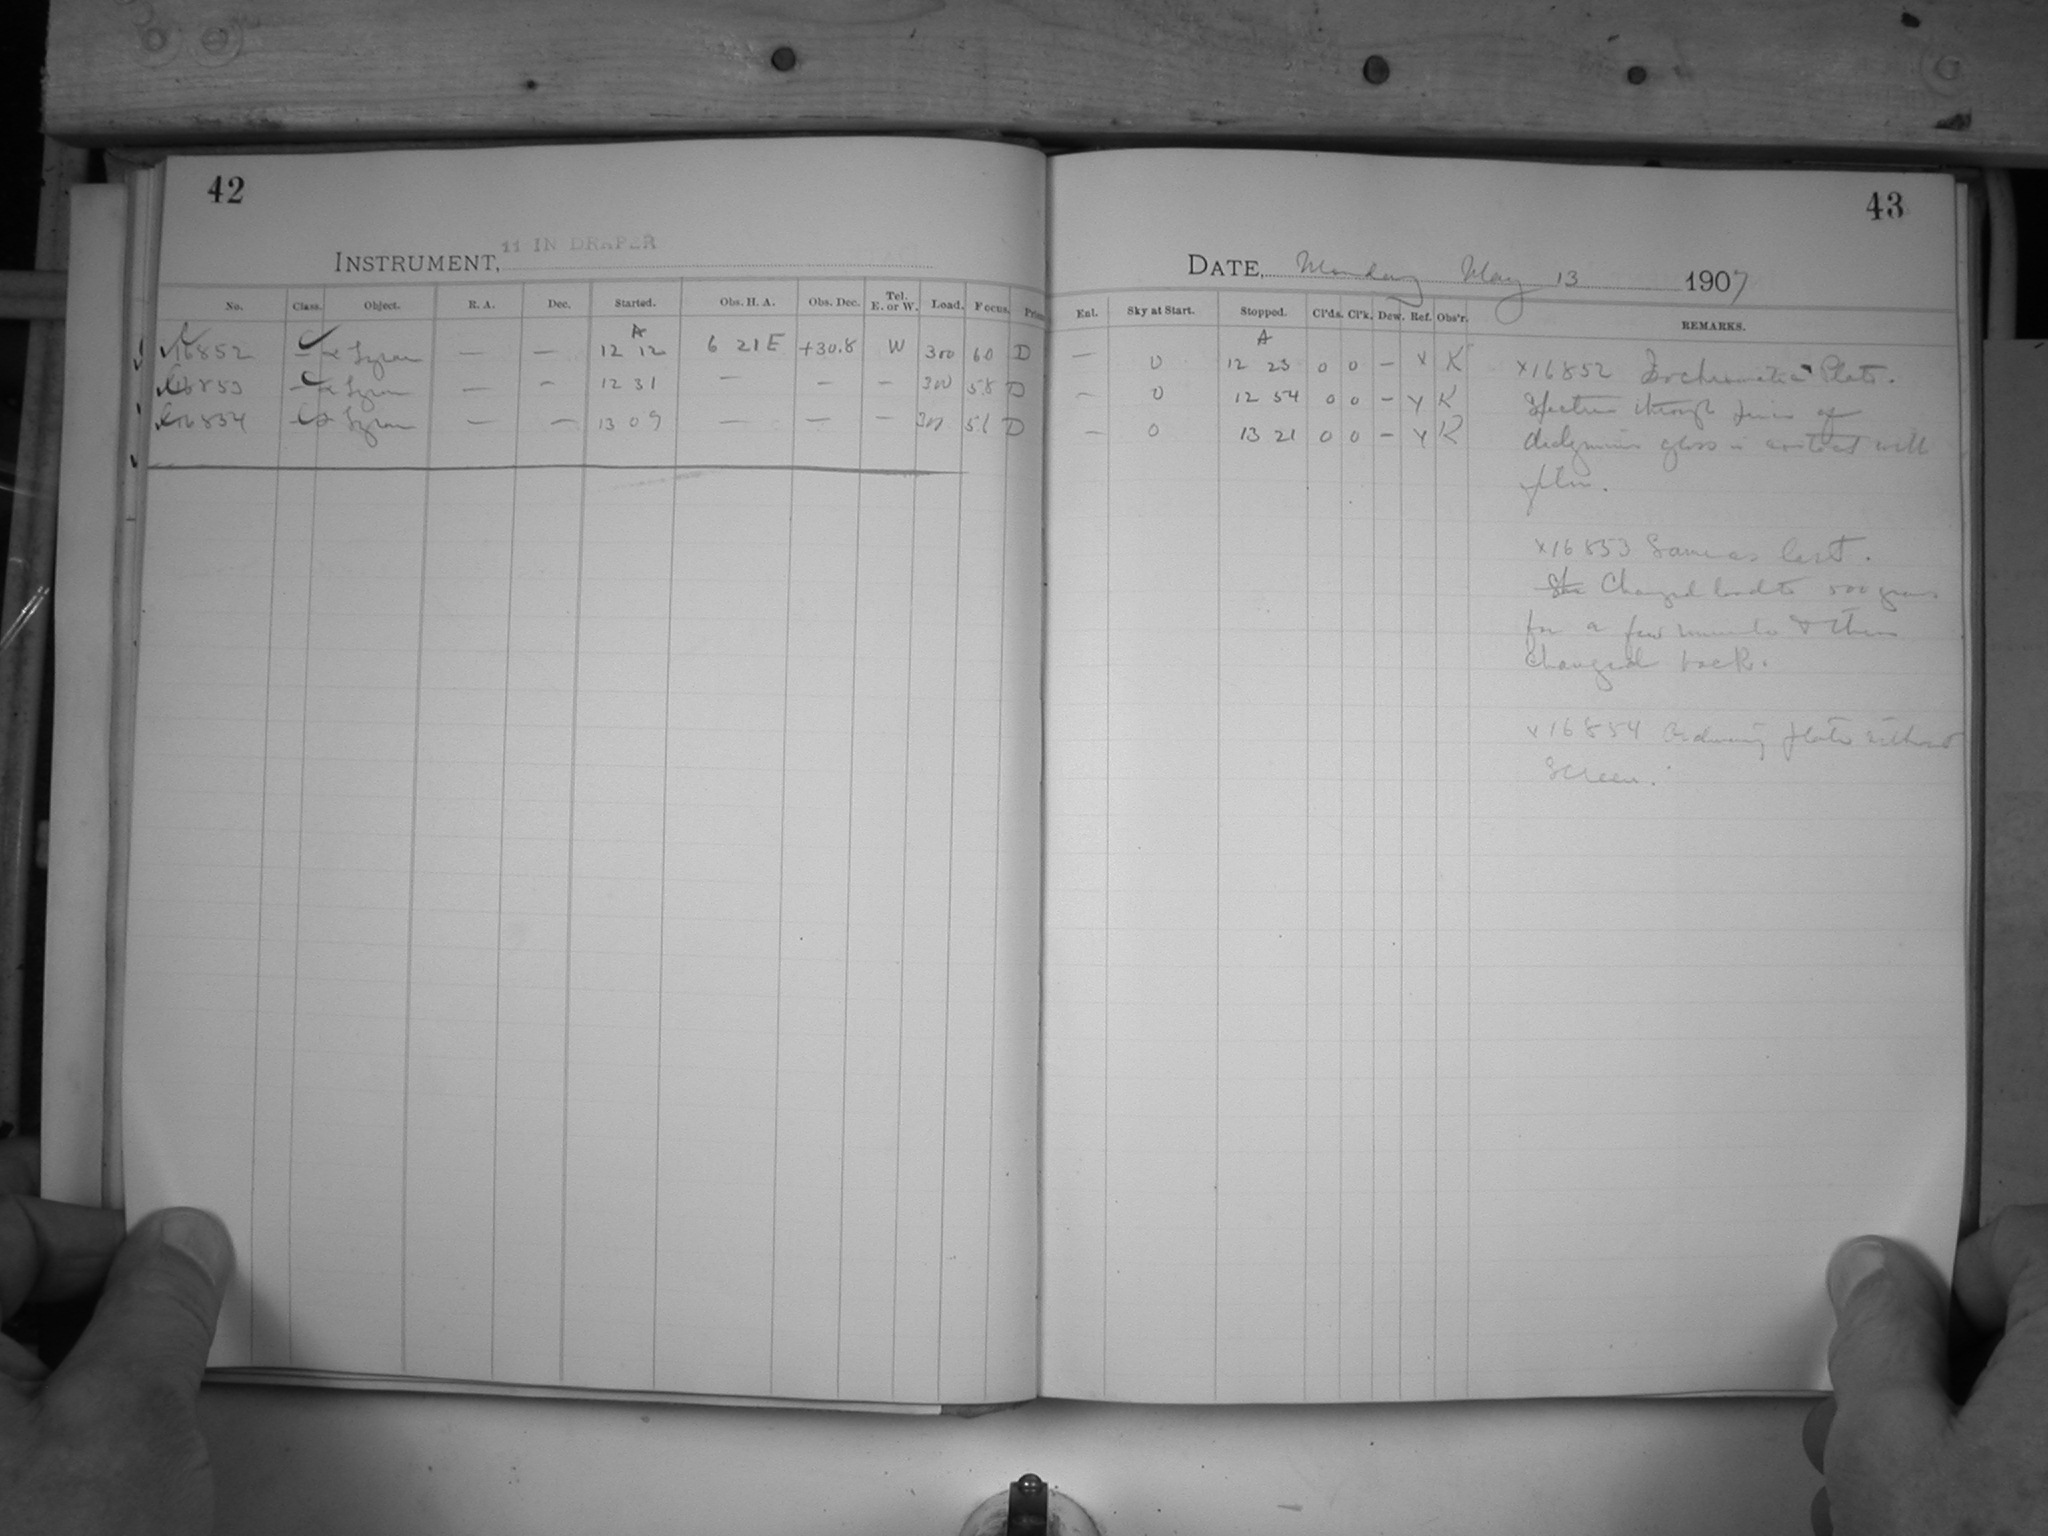 42
INSTRUMENT, 11 IN DRAPER
No. Class. Object. R. A. Dec. Started. Obs. H. A. Obs. Dec. Tel. E. or W. Load. Focus.
A
16852 — α Lyrae — — 12 12 6 21 E +30.8 W 300 60 D
16853 — α Lyrae — — 12 31 — — — 300 58 D
16854 α Lyrae — — 13 09 — — — 300 D
43
DATE, Monday May 13 1907
Ext. Sky at Start. Stopped. Cl'ds. Cl'k. Dew. Ref. Obs'r. REMARKS.
A
— 0 12 23 0 0 — K
— 0 12 54 0 0 — K
— 0 13 21 0 0 — K
X16852 Isochromatic Plate.
Spectrum through of
didymium glass in contact with
film.
X16853 Same as last.
Changed load to 500 grams
for a few minutes & then
changed back.
X16854 Ordinary plate without
screen.